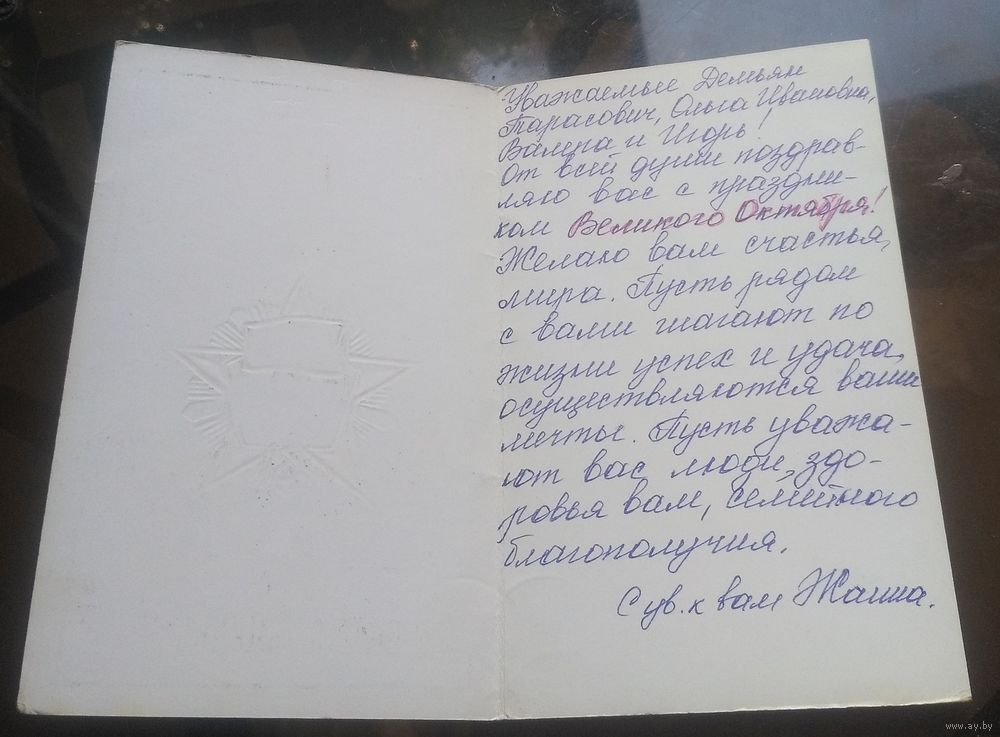 Уважаемые Демьян
Тарасович, Ольга Ивановна,
Валера и Игорь!
От всей души поздрав-
ляю вас с праздни-
ком Великого Октября!
Желаю вам счастья,
мира. Пусть рядом
с вами шагают по
жизни успех и удача,
осуществляются ваши
мечты. Пусть уважа-
ют вас люди, здо-
ровья вам, семейного
благополучия.
С ув. к вам Жанна.
www.ay.by